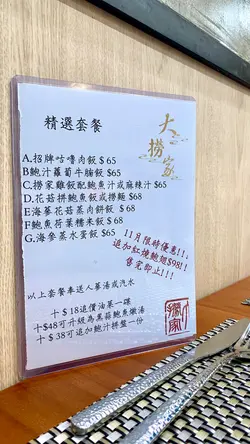 精選套餐
大撈家
A.招牌咕嚕肉飯 $65
B鮑汁蘿蔔牛腩飯 $65
C.撈家雞飯配鮑魚汁或麻辣汁 $65
D.花菇拼鮑魚飯或撈麵 $68
E海蔘花菇蒸肉餅飯 $68
F鮑魚荷葉糯米飯 $68
G.海參蒸水蛋飯 $65
11月限時優惠!!!
追加紅燒鮑翅$98!!
售完即止!!!
以上套餐奉送人蔘湯或汽水
十$18追價油菜一碟
十$48可升級為黑蒜鮑魚燉湯
十$38可追加鮑汁拼盤一份